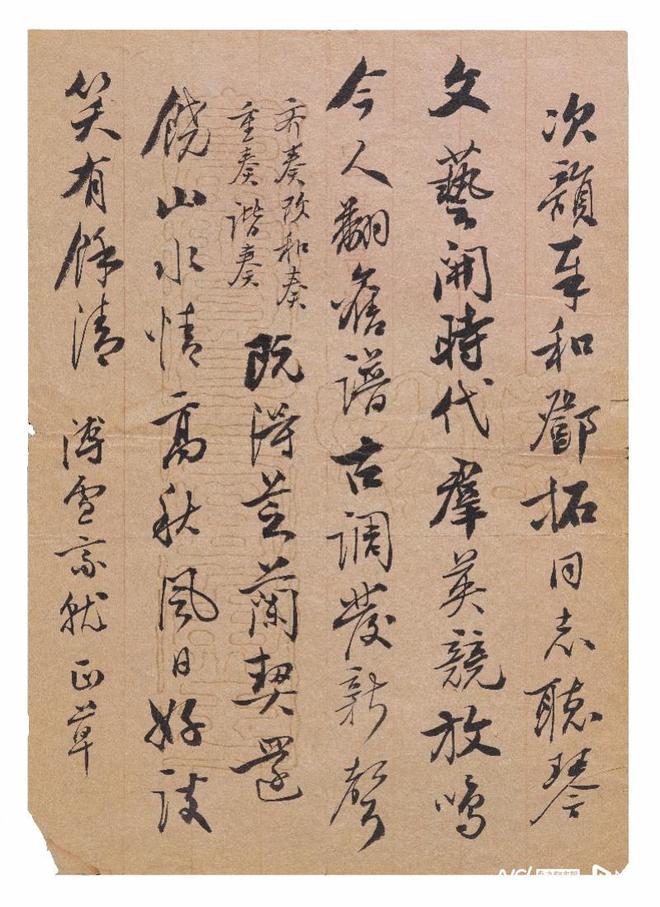 次韻奉和鄧拓同志聽琴
文藝開時代羣英競放鳴
今人翻舊譜古調發新聲
齐奏改和奏
重奏谐奏
既得芝蘭契還
饒山水情高秋風日好談
笑有餘清 溥雪齋就正草